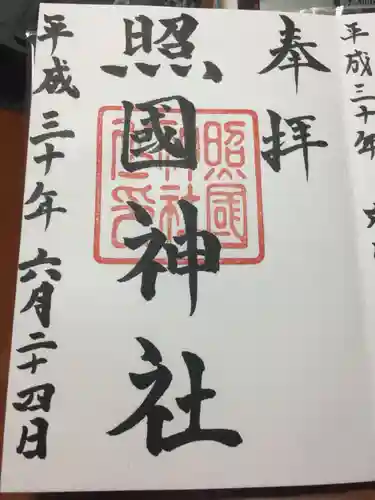 平成三十年 六
奉拝
照國神社
照国神社
平成三十年 六月二十四日